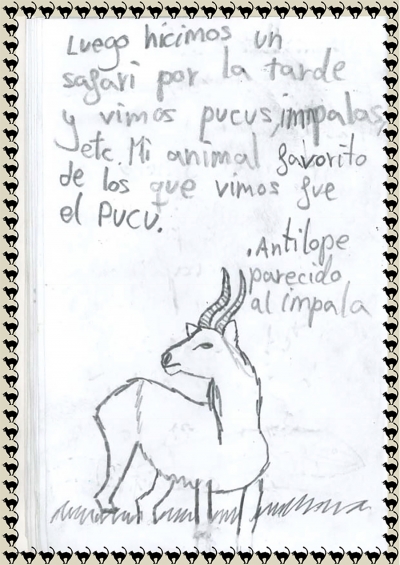 Luego hicimos un
safari por la tarde
y vimos pucus, impalas,
etc. Mi animal favorito
de los que vimos fue
el PUCU.
. Antilope
parecido
al impala